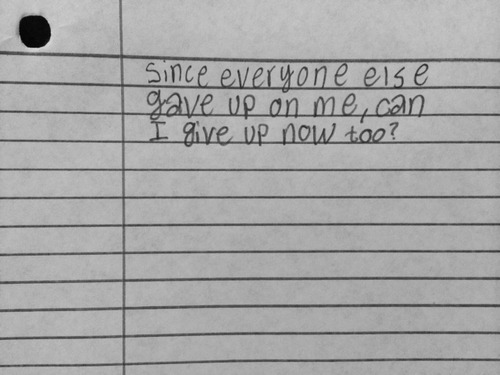 Since everyone else
gave up on me, can
I give up now too?